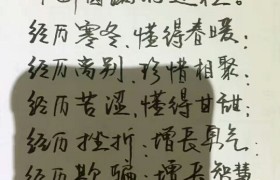 经历寒冬,懂得春暖;
经历离别,珍惜相聚;
经历苦涩,懂得甘甜;
经历挫折;增长勇气;
经历欺骗;增长智慧